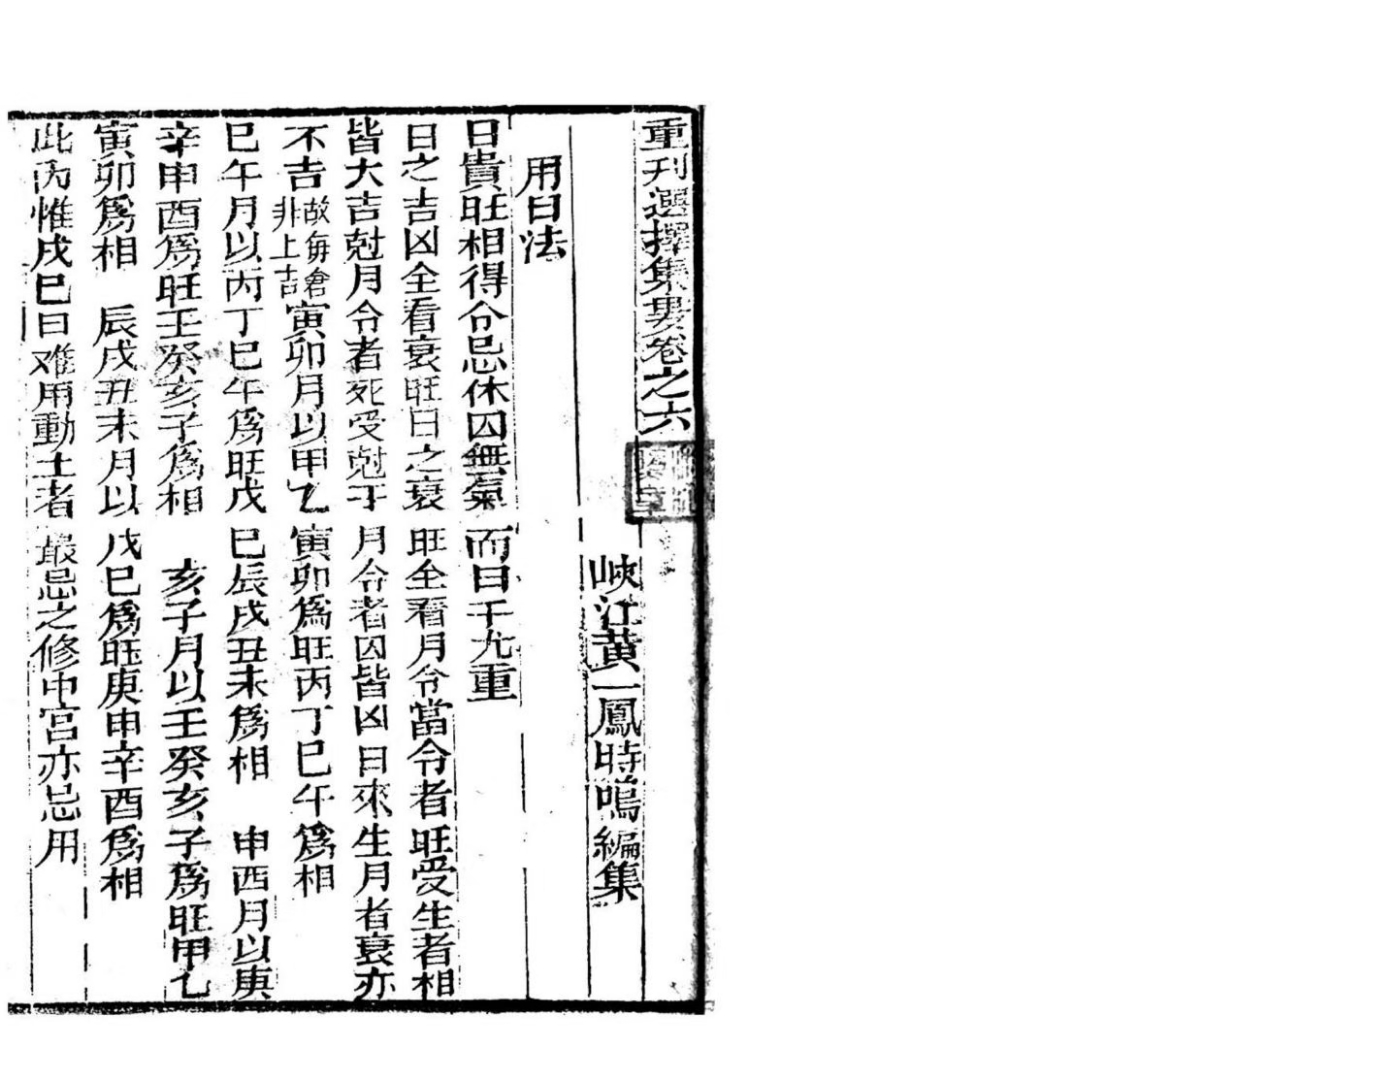 重刊選擇集要卷之六
峽江黃一鳳時鳴編集
用日法
日貴旺相得令忌休囚無氣而日干尤重
日之吉凶全看衰旺日之衰旺全看月令當令者旺受生者相
皆大吉尅月令者死受尅于月令者囚皆凶日來生月者衰亦
不吉故毎倉非上吉寅卯月以甲乙寅卯爲旺丙丁巳午爲相
巳午月以丙丁巳午爲旺戊巳辰戌丑未爲相 申酉月以庚
辛申酉爲旺壬癸亥子爲相 亥子月以壬癸亥子爲旺甲乙
寅卯爲相 辰戌丑未月以戊巳爲旺庚申辛酉爲相
此內惟戊巳日难用動土者最忌之修中宮亦忌用